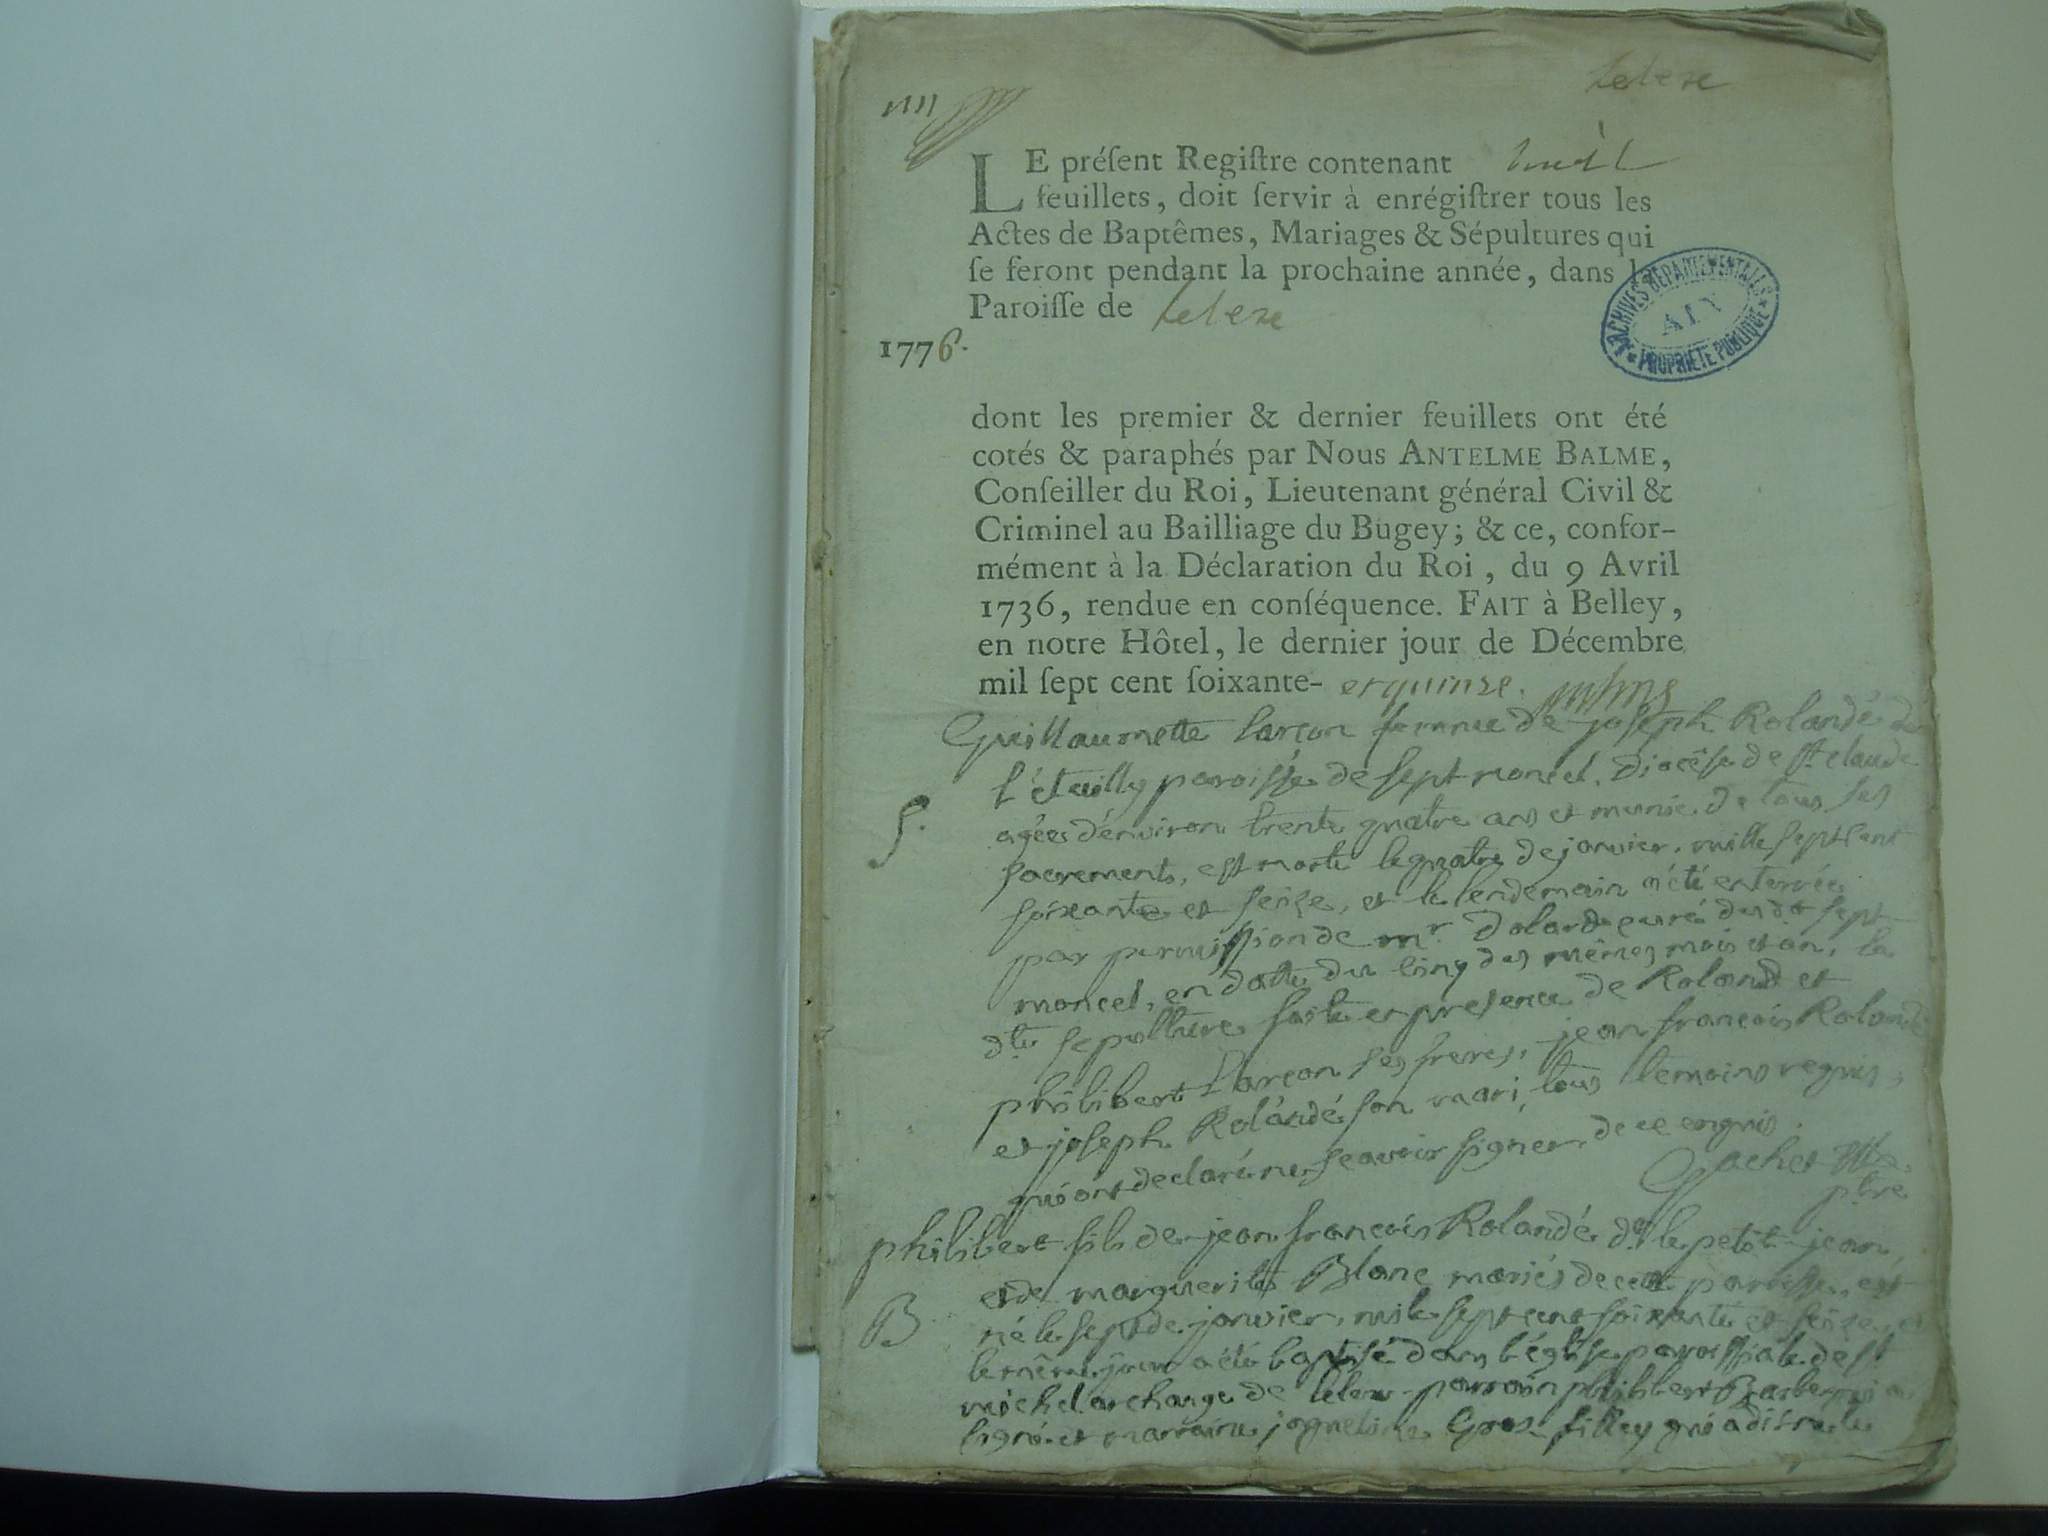 Lelex
LE préſent Regiſtre contenant huit
feuillets, doit ſervir à enrégiſtrer tous les
Actes de Baptêmes, Mariages & Sépultures qui
ſe feront pendant la prochaine année, dans l
Paroiſſe de Lelex
1776.
ARCHIVES DÉPARTEMENTALES
AIN
PROPRIÉTÉ PUBLIQUE
dont les premier & dernier feuillets ont été
cotés & paraphés par Nous ANTELME BALME,
Conſeiller du Roi, Lieutenant général Civil &
Criminel au Bailliage du Bugey; & ce, confor-
mément à la Déclaration du Roi, du 9 Avril
1736, rendue en conſéquence. FAIT à Belley,
en notre Hôtel, le dernier jour de Décembre
mil ſept cent ſoixante- et quinze.
Guillaumette Larçon femme de joseph Rolandé de
paroisse de sept moncel. Diocèse de st claude
S.
agée d'environ trente quatre ans et munie de tous ses
sacrements, est morte le quatre de janvier, mille sept cent
soixante et seise, et le lendemain a été enterrée
par permission de mr. curé du dt sept
moncel, en datte du cinq des mêmes mois et an, la
dte sepulture faite en presence de Roland et
philibert Larçon ses freres, jean françois Rolandé
et joseph Rolandé son mari, tous temoins requis,
qui ont declaré ne scavoir signer de ce enquis.
Gachet
ptre
philibert fils de jean françois Rolandé dt le petit jean,
et de marguerite Blanc mariés de cette paroisse, est
B
né le sept de janvier, mile sept cent soixante et seise, et
le même jour a été baptisé dans l'église paroissiale de st
michel archange de Lelex parrain philibert qui a
signé et marraine jaqueline Gros qui a dit ne le